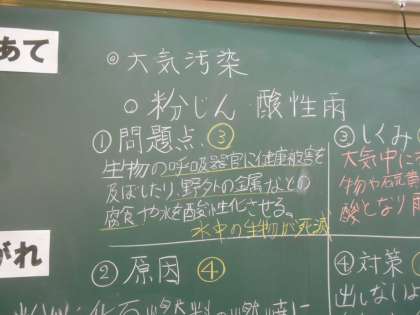 あて
◎大気汚染
○粉じん 酸性雨
①問題点 ③
生物の呼吸器官に健康被害を
及ぼしたり、野外の金属などの
腐食や水を酸性化させる。
水中の生物が死滅
③しくみ
大気中に
物や硫黄
酸となり雨
がれ
②原因 ④
粉じん:化石燃料の燃焼に
④対策
出しないよ